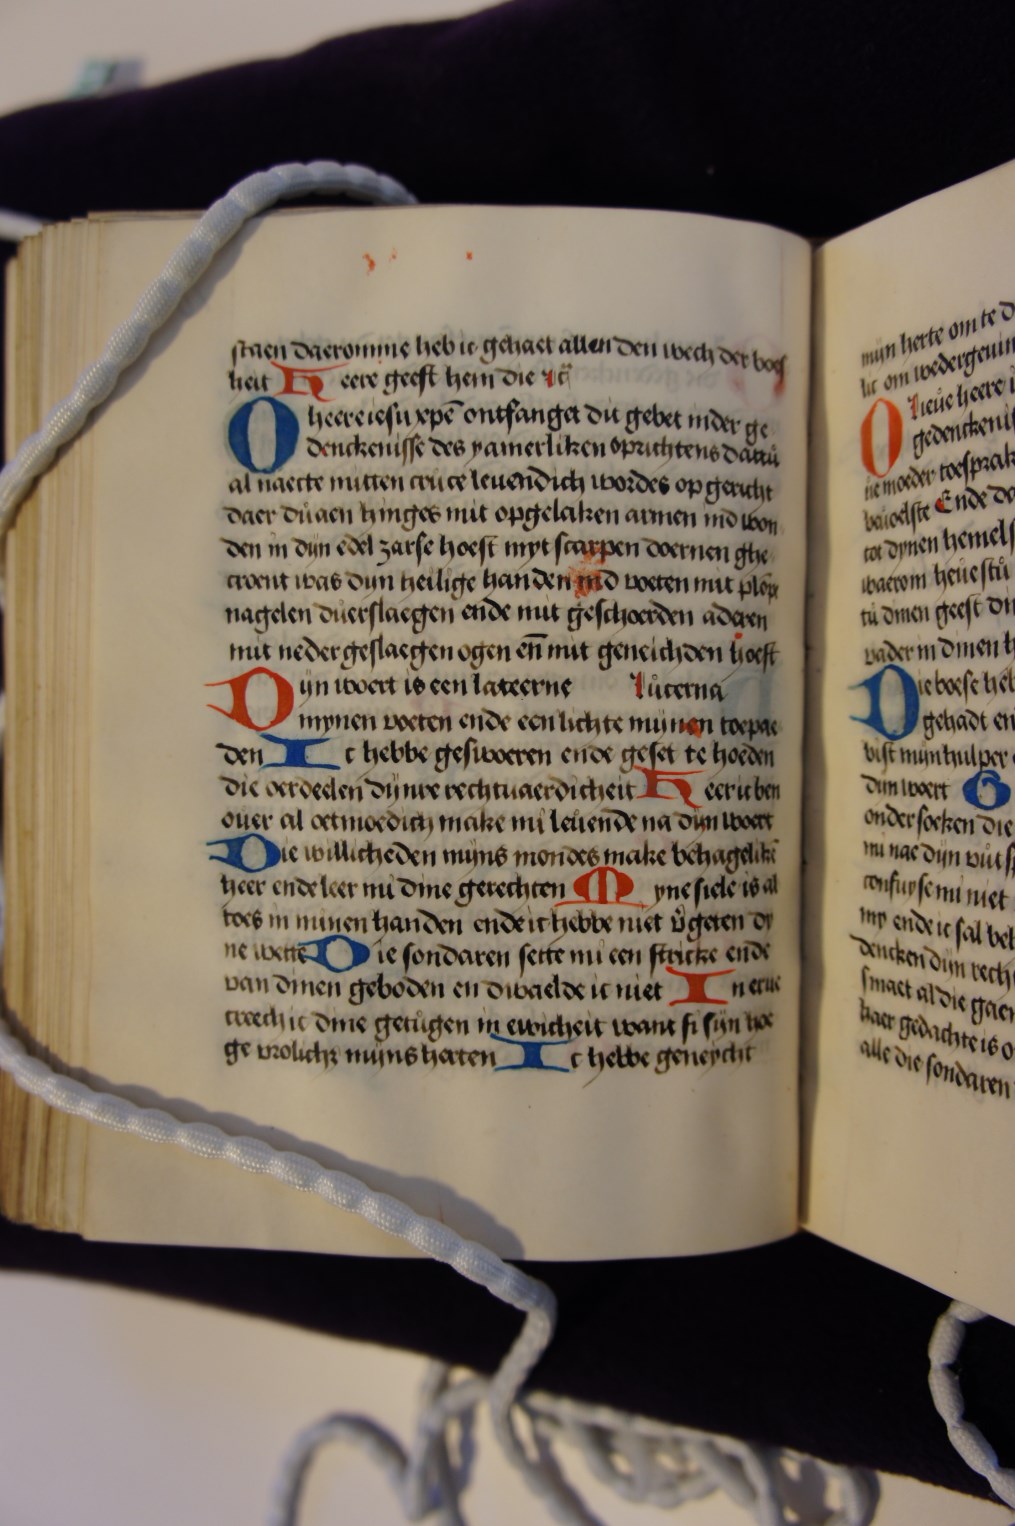 staen daeromme heb ic gehaet allen den wech der boes
heit Heere geest hem die ꝛc̄
O heere iesu xpē ontfanget dit gebet inder ge
denckenisse des yamerliken oprichtens dattu
al naecte mitten cruce leuendich wordes op gericht
daer du aen hinges mit opgelaken armen ind won
den in dijn edel zarse hoeft myt scarpen doernen ghe
croent was dijn heilige handen ind voeten mit plōp
nagelen duerslaegen ende mit geschoerden aderen
mit neder geslaegen ogen en̄ mit geneichden hoeft
Dijn woert is een lateerne Lucerna
mynen voeten ende een lichte mijnen toepae
den Ic hebbe geswoeren ende geset te hoeden
die oerdeelen dijnre rechtuaerdicheit Heer ic ben
ouer al oetmoedich make mi leuende na dijn woert
Die willicheden mijns mondes make behagelike
heer ende leer mi dine gerechten Myne siele is al
toes in minen handen ende ic hebbe niet v̄geten dy
ne wette Die sondaren sette mi een stricke ende
van dinen geboden en dwaelde ic niet In erue
creech ic dine getugen in ewicheit want si sijn hoe
ge vrolicht mijns herten Ic hebbe geneycht
mijn herte om te
lic om wedergeuin
O lieue heere
gedenckenis
ne moeder toesprak
Ende
tot dynen hemels
waerom heuestu
tu dinen geest
vader in dinen
Die boese heb
gehadt en
bist mijn hulper
dijn woert G
ondersoeken die
mi nae dijn
confuyse mi niet
my ende ic sal
dencken dijn rech
smaet al die
haer gedachte is
alle die sondaren